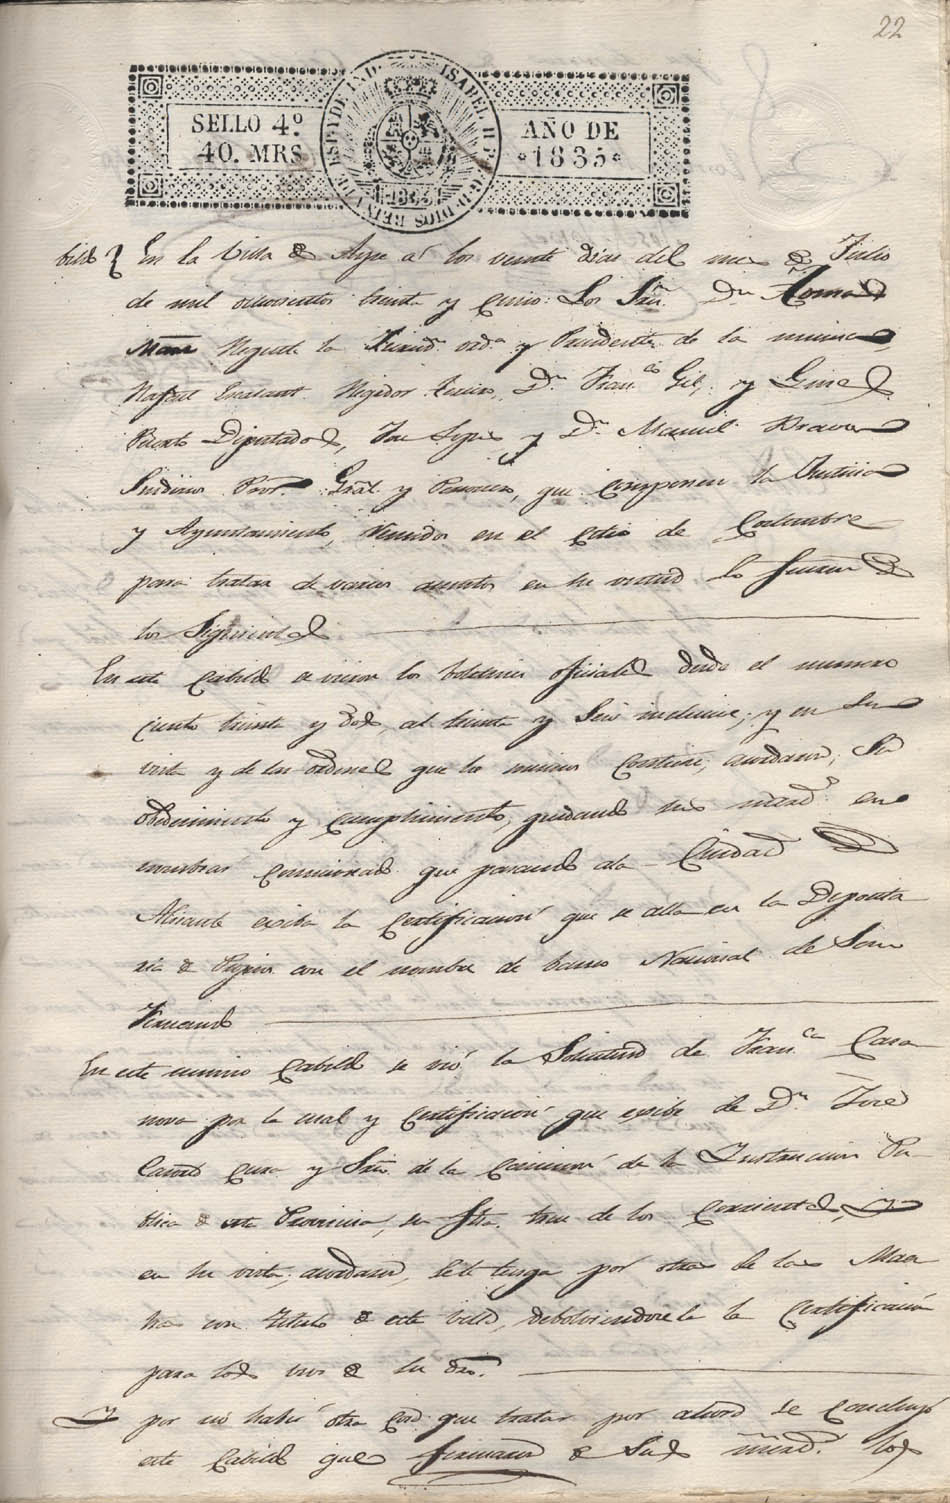 22
SELLO 4º
40. MRS
AÑO DE
1835
ISABEL II
bildo En la Villa de Aspe á los veinte dias del mes de Julio
de mil ochocientos treinta y cinco: Los Sres. Dn. Tomas
Regente la ordª y Presidente de la misma
Rafael Regidor Dn. Franco. Gil, y Gines
Puerto Diputados, Jose y Dn. Manuel Bravo
Sindicos Pror. Gral. y Personero, que componen la Justicia
y Ayuntamiento, reunidos en el de Costumbre
para tratar de varios asuntos en su virtud lo de
los Siguientes
En este Cabildo se vieron los boletines oficiales desde el numero
ciento treinta y dos, al treinta y Seis inclusive; y en su
vista y de las ordenes que los mismos Contiene, acordaron, Su
obedecimiento y cumplimiento, quedando sus mercds. en
nombrar Comisionado que pasando ala Ciudad de
Alicante exiba la Certificacion que se alla en la Deposita
ria de Propios con el nombre de banco Nacional de San
Fernando
En este mismo Cabildo se vió la Solicitud de Franca. Casa
nova por la cual y Certificacion que exibe de Dn. José
cura y Srio. de la Comision de la Instruccion Pu
blica de esta Provincia, su fha. tres de los Corrientes, y
en su vista, acordaron, sele tenga por otra de las Maes
tras con Titulo de esta Villa, debolviendosela la Certificacion
para los usos de su dro.
Y por no haber otra Cosa que tratar por ahora se Concluyó
este Cabildo que firmaron de Sus mercds. los